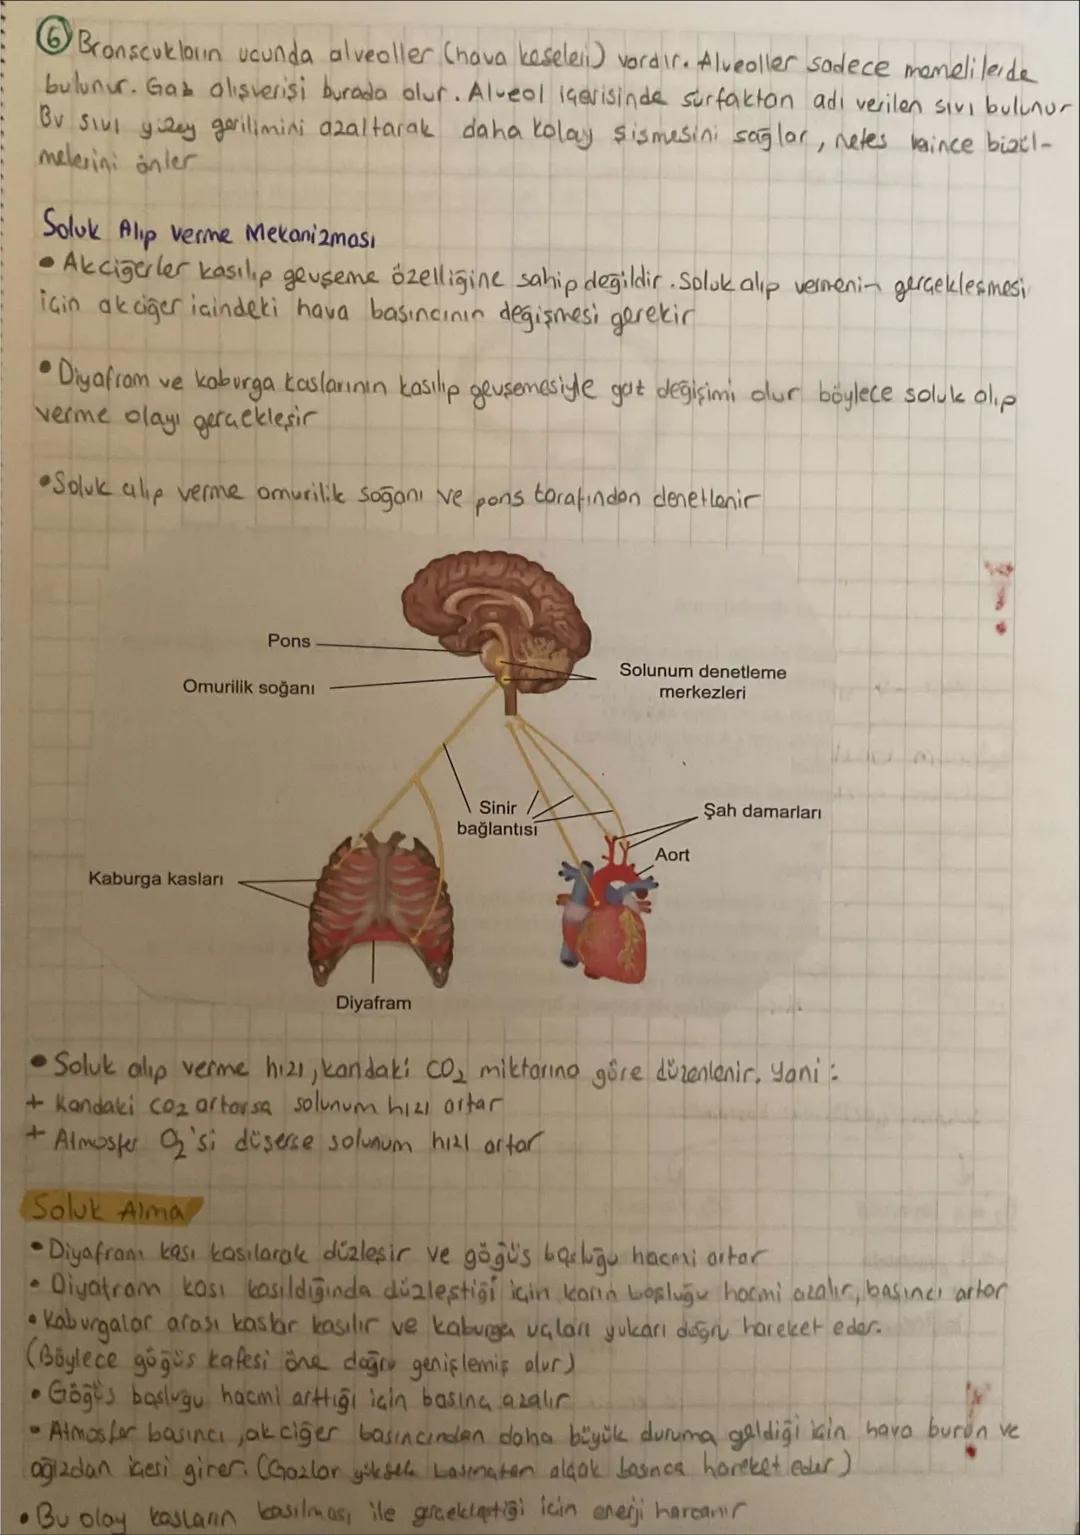 6 Bronşcukların ucunda alveoller (hava keseleri) vardır. Alveoller sadece memelilerde
bulunur. Gaz alışverişi burada olur. Alveol içerisinde sürfaktan adı verilen sıvı bulunur
Bu sıvı yüzey gerilimini azaltarak daha kolay şişmesini sağlar, nefes verince büzül-
melerini önler
Soluk Alıp Verme Mekanizması
• Akciğerler kasılıp gevşeme özelliğine sahip değildir. Soluk alıp vermenin gerçekleşmesi
için akciğer içindeki hava basıncının değişmesi gerekir
• Diyafram ve kaburga kaslarının kasılıp gevşemesiyle gaz değişimi olur böylece soluk alıp
verme olayı gerçekleşir
• Soluk alıp verme omurilik soğanı ve pons tarafından denetlenir
Pons
Omurilik soğanı
Solunum denetleme
merkezleri
Sinir
bağlantısı
Şah damarları
Aort
Kaburga kasları
Diyafram
• Soluk alıp verme hızı, kandaki CO₂ miktarına göre düzenlenir. Yani :
+ Kandaki CO₂ artarsa solunum hızı artar
+ Atmosfer O₂'si düşerse solunum hızı artar
Soluk Alma
• Diyafram kası kasılarak düzleşir ve göğüs boşluğu hacmi artar
• Diyafram kası kasıldığında düzleştiği için karın boşluğu hacmi azalır, basıncı artar
• Kaburgalar arası kaslar kasılır ve kaburga uçları yukarı doğru hareket eder.
(Böylece göğüs kafesi öne doğru genişlemiş olur)
• Göğüs boşluğu hacmi arttığı için basınç azalır
• Atmosfer basıncı, akciğer basıncından daha büyük duruma geldiği için hava burun ve
ağızdan içeri girer. (Gazlar yüksek basınçtan alçak basınca hareket eder)
• Bu olay kasların kasılması ile gerçekleştiği için enerji harcanır